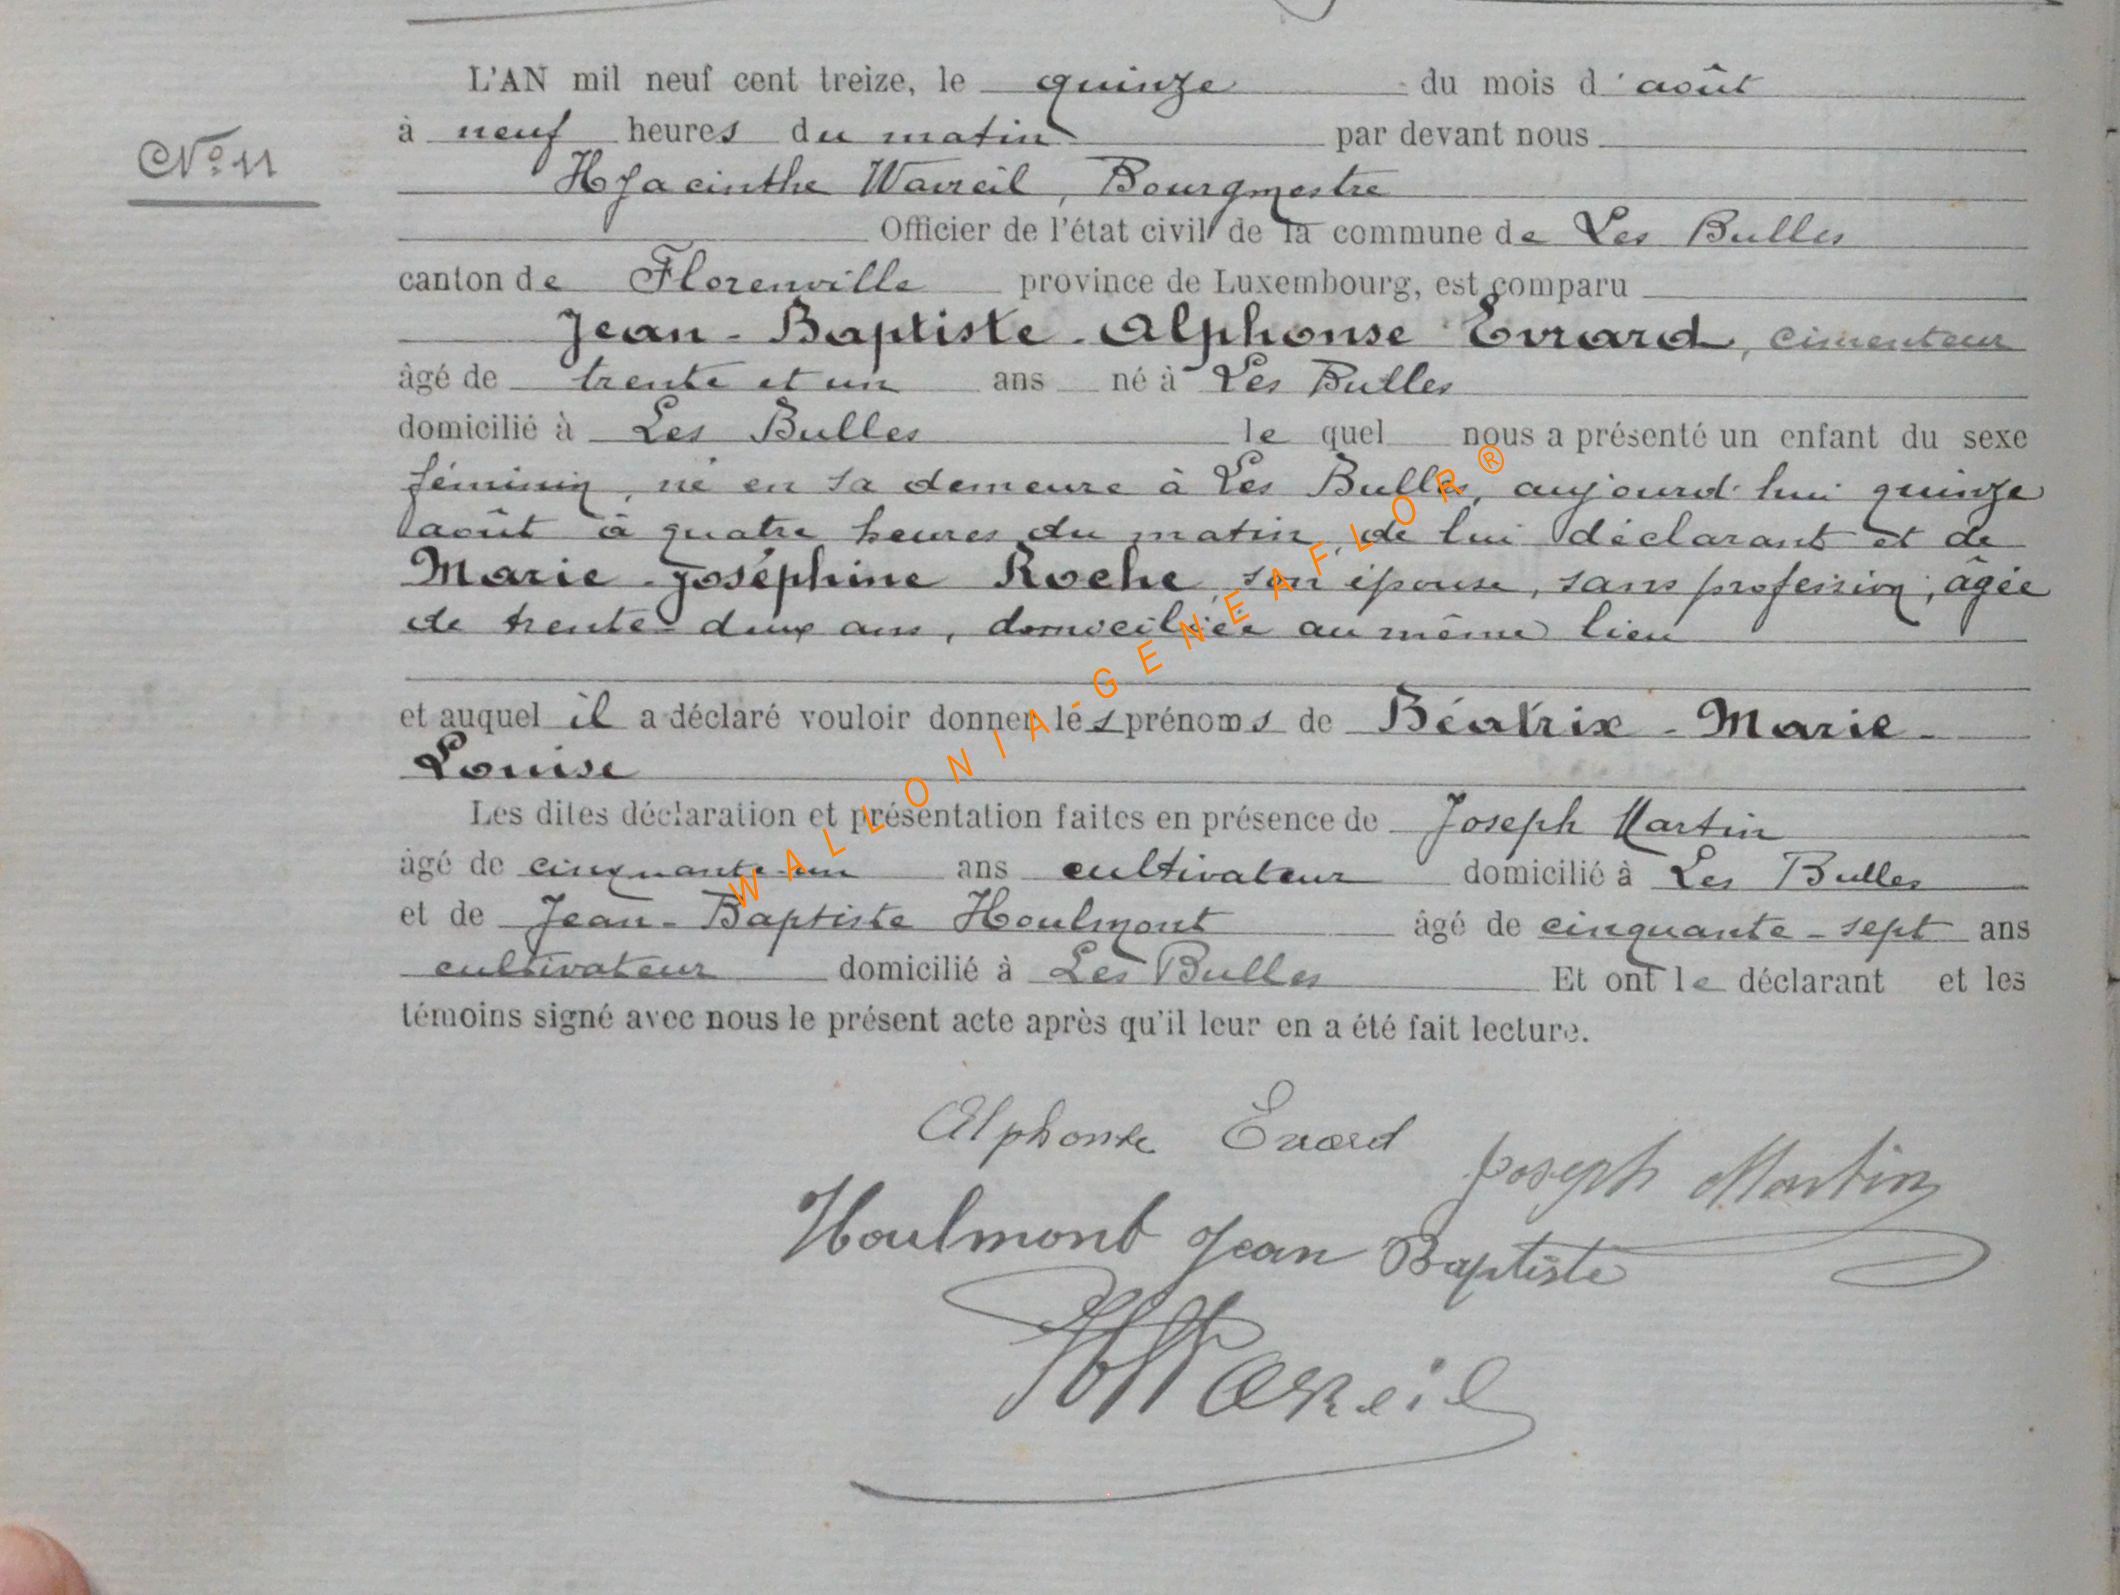 L'AN mil neuf cent treize, le quinze du mois d'août
à neuf heures du matin par devant nous
N° 11
Hyacinthe Wavreil, Bourgmestre
Officier de l'état civil de la commune de Les Bulles
canton de Florenville province de Luxembourg, est comparu
Jean-Baptiste-Alphonse Evrard, cimenteur
âgé de trente et un ans né à Les Bulles
domicilié à Les Bulles le quel nous a présenté un enfant du sexe
féminin, né en sa demeure à Les Bulles, aujourd'hui quinze
août à quatre heures du matin, de lui déclarant et de
Marie-Joséphine Roche, son épouse, sans profession, âgée
de trente-deux ans, domiciliée au même lieu
et auquel il a déclaré vouloir donner les prénoms de Béatrix-Marie-
Louise
Les dites déclaration et présentation faites en présence de Joseph Martin
âgé de cinquante-un ans cultivateur domicilié à Les Bulles
et de Jean-Baptiste Houlmont âgé de cinquante-sept ans
cultivateur domicilié à Les Bulles Et ont le déclarant et les
témoins signé avec nous le présent acte après qu'il leur en a été fait lecture.
Alphonse Evrard
Joseph Martin
Houlmont Jean Baptiste
WALLONIA-GENEAFLOR®